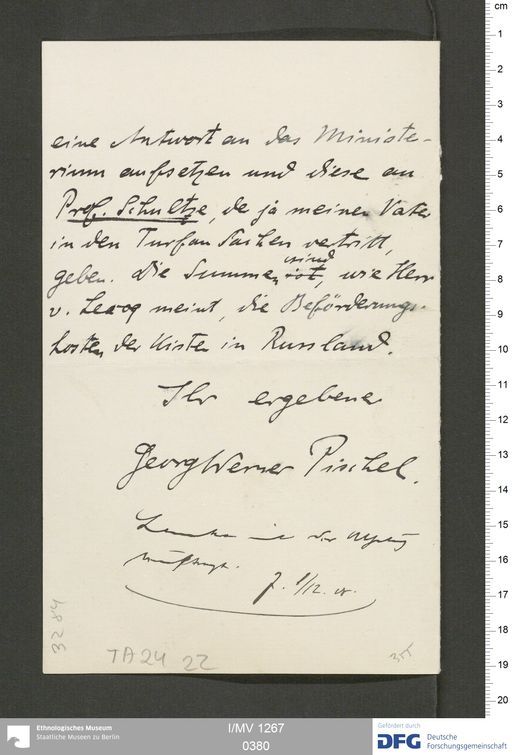 eine Antwort an das Ministe-
rium aufsetzen und diese an
Prof. Schultze, der ja meinen Vater
in den Turfan Sachen vertritt,
geben. Die Summen sind ist, wie Herr
v. Lecoq meint, die Beförderungs-
kosten der Kisten in Russland.
Ihr ergebener
Georg Werner Pischel.
1/12.
3284
TA 24 22
cm
1
2
3
4
5
6
7
8
9
10
11
12
13
14
15
16
17
18
19
20
Ethnologisches Museum
Staatliche Museen zu Berlin
I/MV 1267
0380
Gefördert durch
DFG Deutsche
Forschungsgemeinschaft